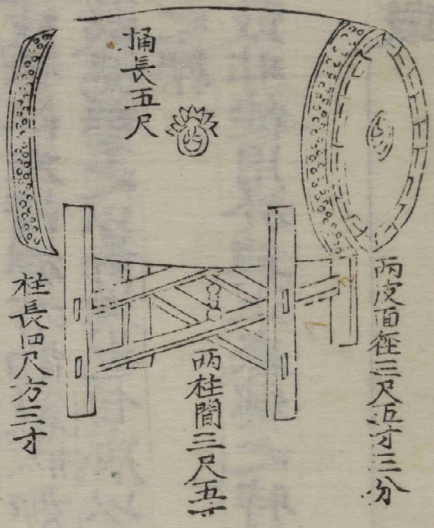 桶長五尺
兩皮面徑三尺五寸三分
兩柱間三尺五寸
柱長四尺方三寸